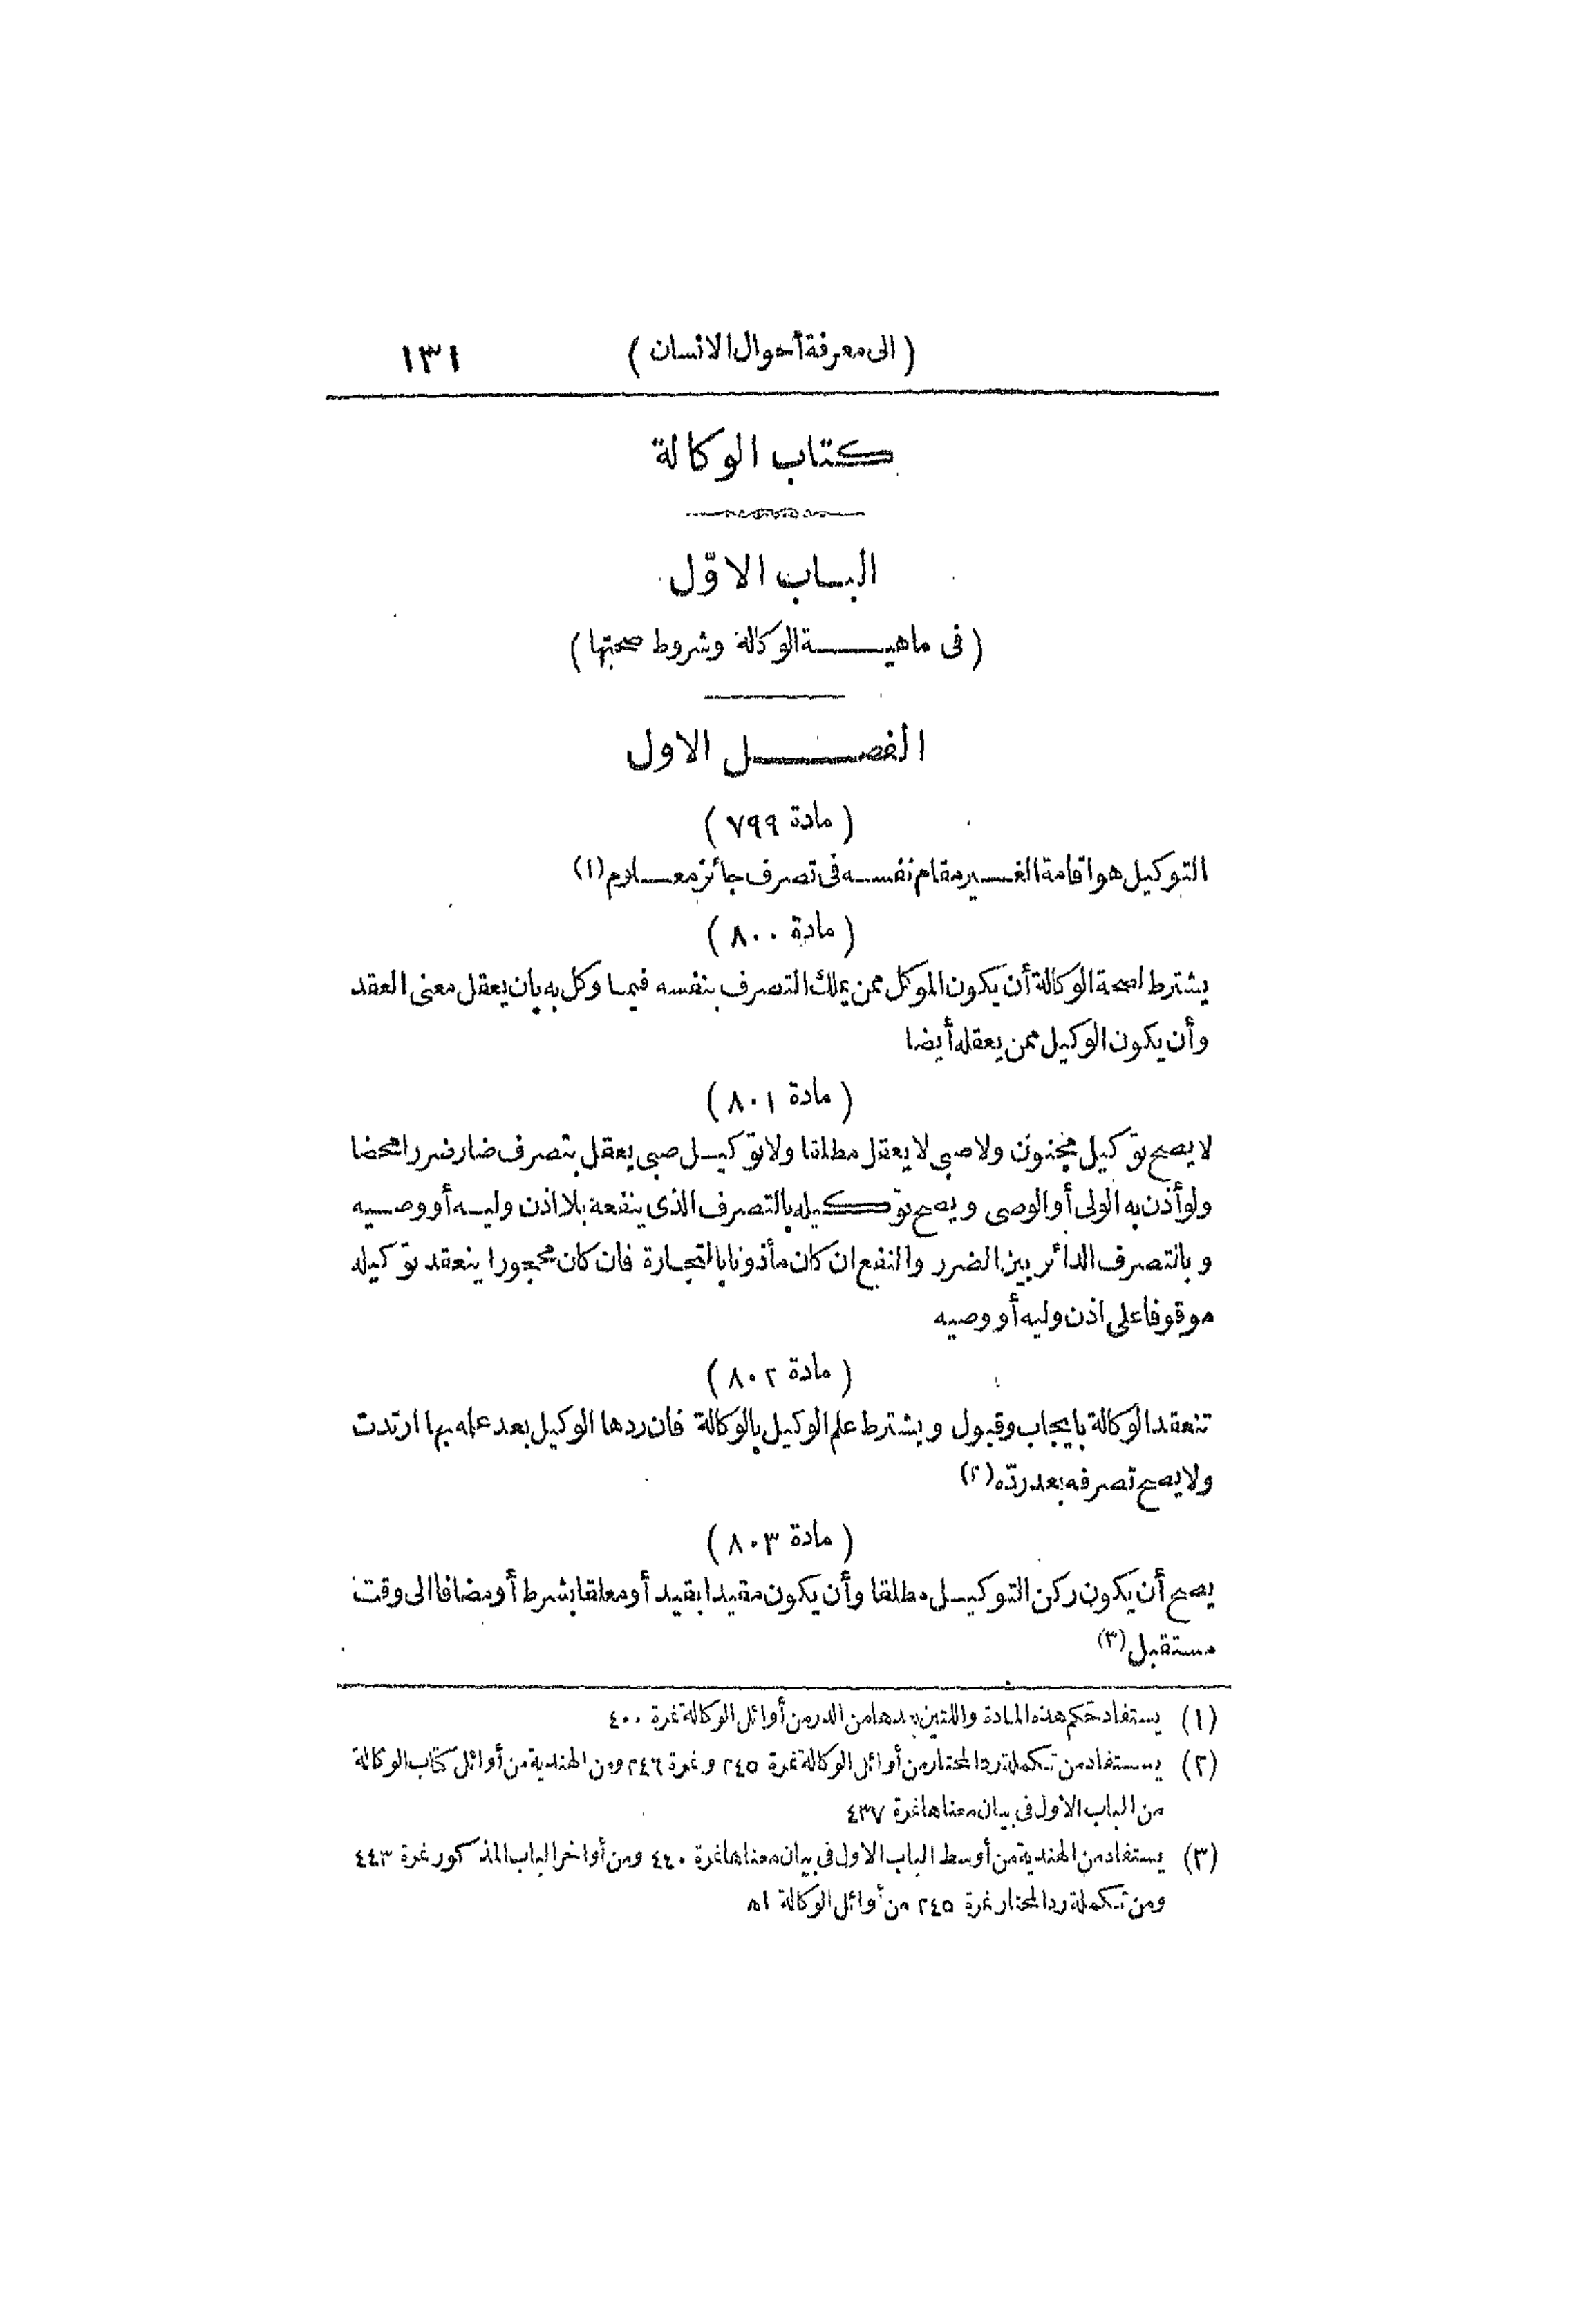 (الى معرفة أحوال الانسان) ١٣١
كتاب الوكالة
الباب الاوّل
(فى ماهية الوكالة وشروط صحتها)
الفصل الاول
(مادة ٧٩٩)
التوكيل هو اقامة الغير مقام نفسه فى تصرف جائز معلوم (١)
(مادة ٨٠٠)
يشترط لصحة الوكالة أن يكون الموكل ممن يملك التصرف بنفسه فيما وكل به بان يعقل معنى العقد
وأن يكون الوكيل ممن يعقله أيضا
(مادة ٨٠١)
لا يصح توكيل مجنون ولا صبى لا يعقل مطلقا ولا توكيل صبى يعقل بتصرف ضار ضررا محضا
ولو أذن به الولى أو الوصى ويصح توكيله بالتصرف الذى ينفعه بلا اذن وليه أو وصيه
وبالتصرف الدائر بين الضرر والنفع ان كان مأذونا بالتجارة فان كان محجورا ينعقد توكيله
موقوفا على اذن وليه أو وصيه
(مادة ٨٠٢)
تنعقد الوكالة بايجاب وقبول ويشترط علم الوكيل بالوكالة فان ردها الوكيل بعد علمه بها ارتدت
ولا يصح تصرفه بعد ردّه (٢)
(مادة ٨٠٣)
يصح أن يكون ركن التوكيل مطلقا وأن يكون مقيدا بقيد أو معلقا بشرط أو مضافا الى وقت
مستقبل (٣)
(١) يستفاد حكم هذه المادة واللتين بعدها من الدر من أوائل الوكالة نمرة ٤٠٠
(٢) يستفاد من تكملة رد المحتار من أوائل الوكالة نمرة ٢٤٥ و نمرة ٢٤٦ ومن الهندية من أوائل كتاب الوكالة
من الباب الاول فى بيان معناها نمرة ٤٣٧
(٣) يستفاد من الهندية من أوسط الباب الاول فى بيان معناها نمرة ٤٤٠ ومن أواخر الباب المذكور نمرة ٤٤٣
ومن تكملة رد المحتار نمرة ٢٤٥ من أوائل الوكالة اه